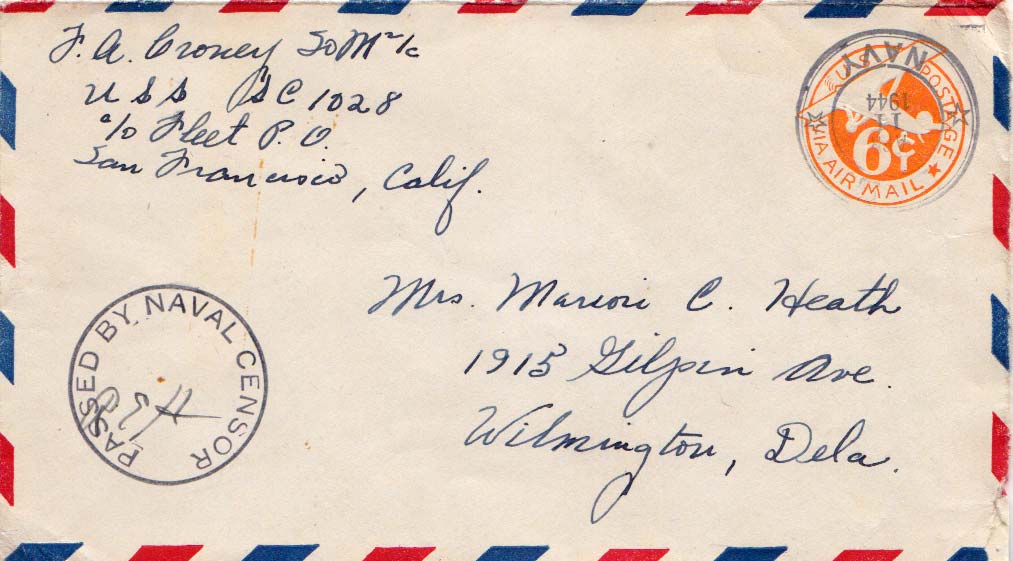 F. A. Croney SoM 2/c
USS SC 1028
c/o Fleet P. O.
San Francisco, Calif.
NAVY
11
1944
U.S. POSTAGE
VIA AIR MAIL
6¢
Mrs. Marion C. Heath
1915 Gilpin Ave.
Wilmington, Dela.
PASSED BY NAVAL CENSOR